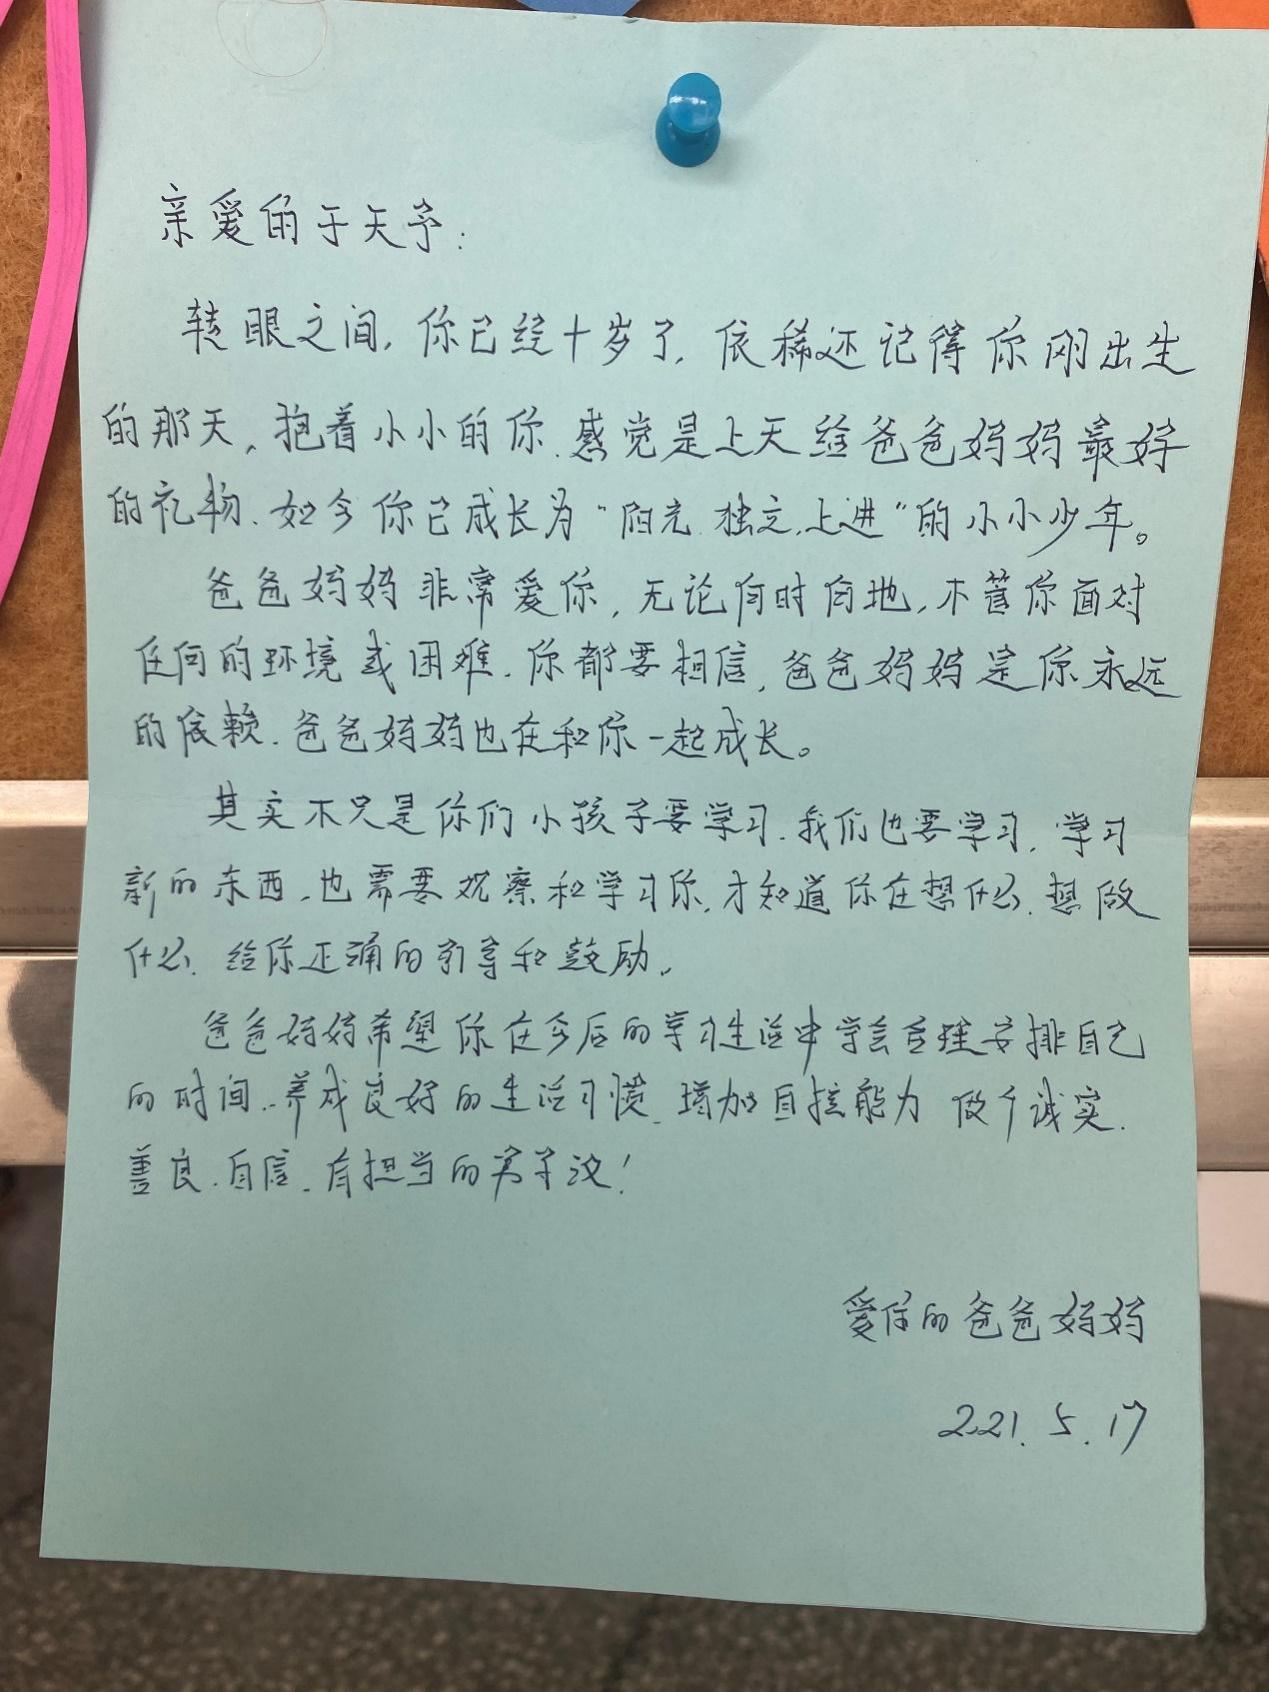 亲爱的于天予:
转眼之间,你已经十岁了,依稀还记得你刚出生
的那天,抱着小小的你.感觉是上天给爸爸妈妈最好
的礼物.如今你已成长为“阳光.独立.上进”的小小少年。
爸爸妈妈非常爱你,无论何时何地,不管你面对
任何的环境或困难.你都要相信,爸爸妈妈是你永远
的依赖.爸爸妈妈也在和你一起成长。
其实不只是你们小孩子要学习.我们也要学习,学习
新的东西.也需要观察和学习你.才知道你在想什么.想做
什么.给你正确的引导和鼓励.
爸爸妈妈希望你在今后的学习生活中学会合理安排自己
的时间.养成良好的生活习惯.增加自控能力 做个诚实.
善良.自信.有担当的男子汉!
爱你的爸爸妈妈
2021.5.17